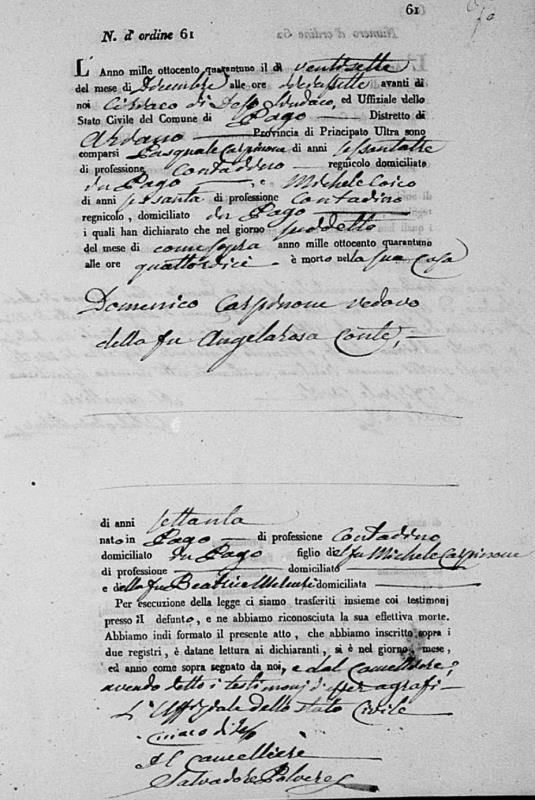 61
N. d' ordine 61
L' Anno mille ottocento quarantuno il di ventisette
del mese di Decembre alle ore diecisette avanti di
noi Ciriaco di Deso Sindaco, ed Uffiziale dello
Stato Civile del Comune di Pago Distretto di
Ariano Provincia di Principato Ultra sono
comparsi Pasquale Carpinone di anni sessantatre
di professione Contadino regnicolo domiciliato
in Pago e Michele Coico
di anni sessanta di professione Contadino
regnicolo, domiciliato in Pago
i quali han dichiarato che nel giorno suddetto
del mese di come sopra anno mille ottocento quarantuno
alle ore quattordici è morto nella sua casa
Domenico Carpinone vedovo
della fu Angelarosa Conte,
di anni settanta
nato in Pago di professione Contadino
domiciliato in Pago figlio del fu Michele Carpinone
di professione domiciliato
e della fu Beatrice domiciliata
Per esecuzione della legge ci siamo trasferiti insieme coi testimonj
presso il defunto, e ne abbiamo riconosciuta la sua effettiva morte.
Abbiamo indi formato il presente atto, che abbiamo inscritto sopra i
due registri, è datane lettura ai dichiaranti, si è nel giorno, mese,
ed anno come sopra segnato da noi, e dal Cancelliere;
avendo detto i testimonj d'esser agrafi
L'Uffiziale dello stato Civile
Ciriaco di Deso
Il Cancelliere
Salvadore Polvere